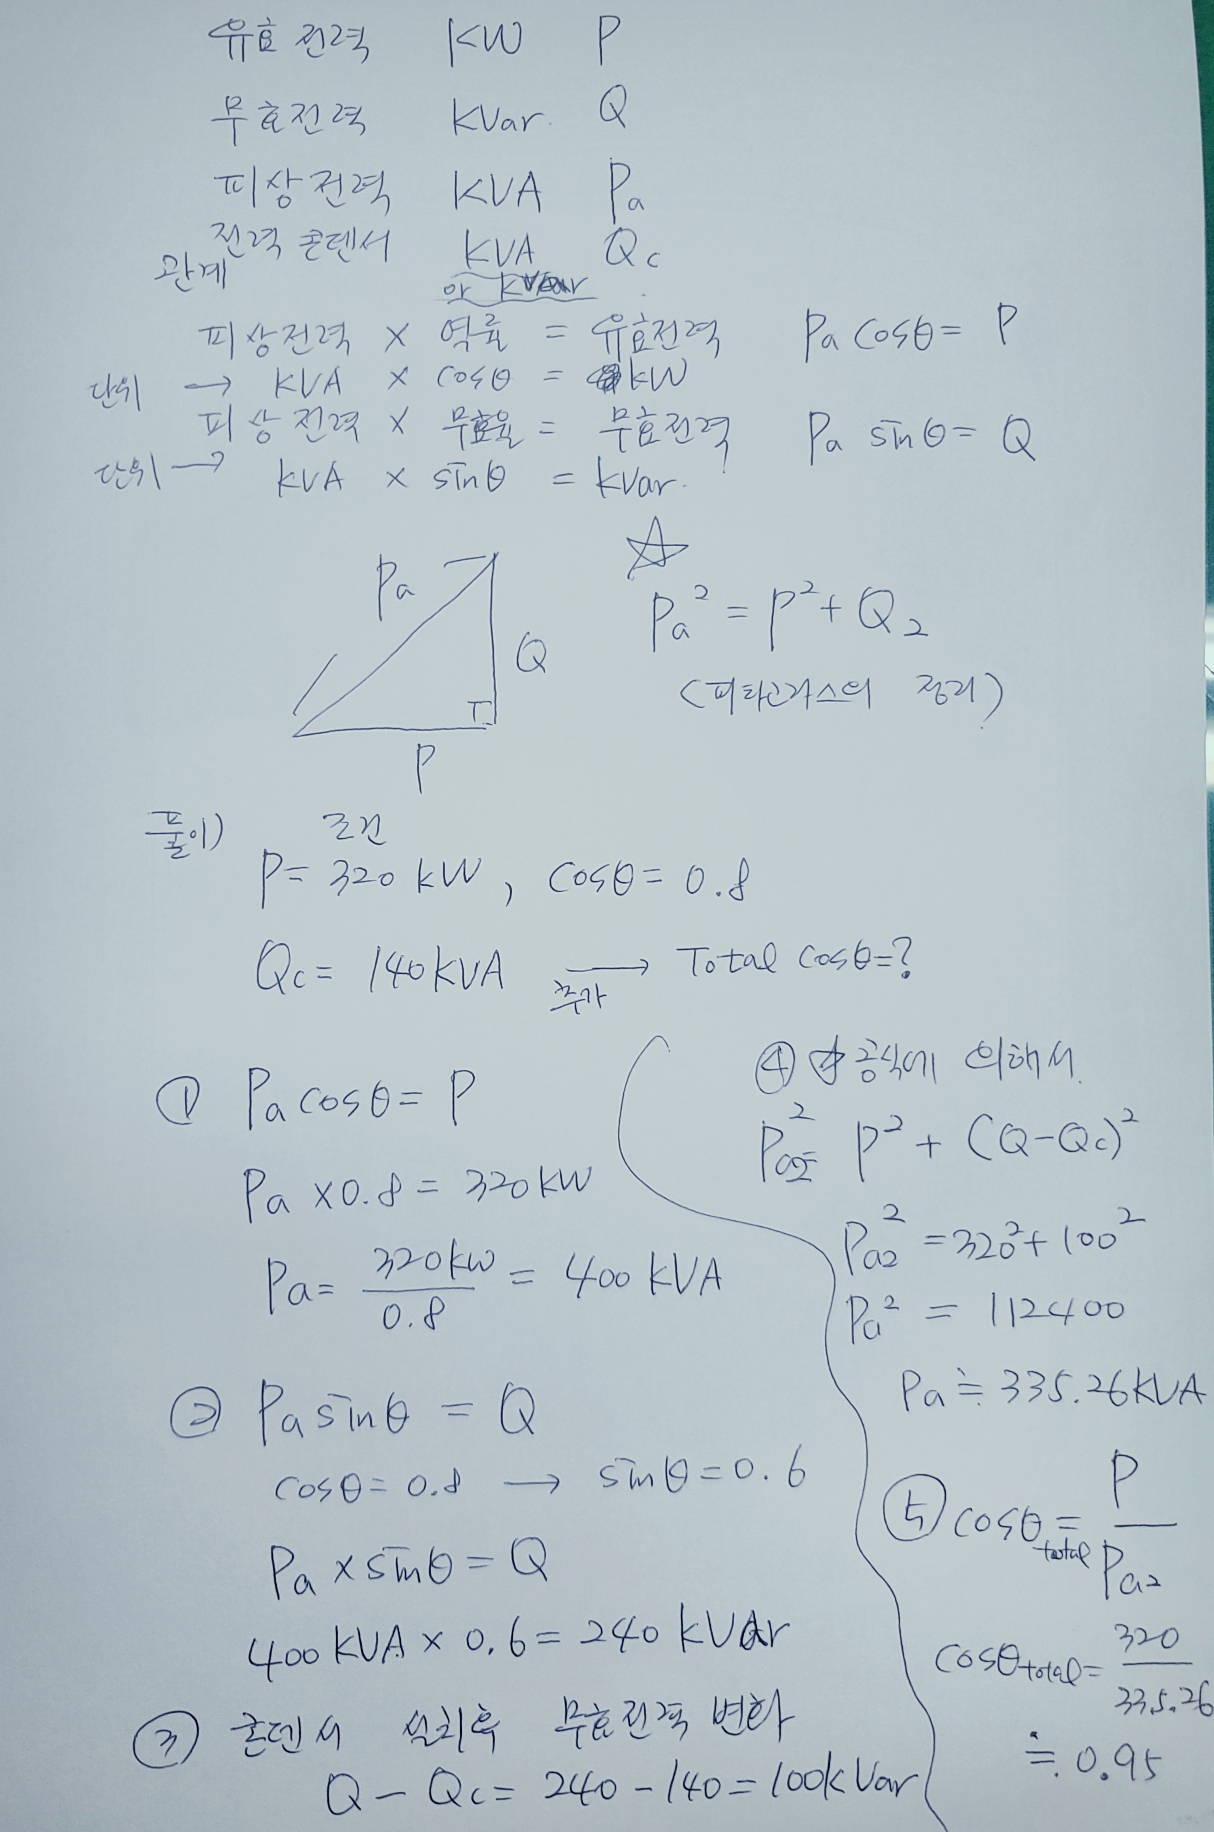 유효전력 KW P
무효전력 KVar. Q
피상전력 KVA Pa
전력콘덴서 KVA Qc
관계
or kVar
피상전력 × 역률 = 유효전력 Pa cosθ = P
단위 → KVA × cosθ = kW
피상전력 × 무효율 = 무효전력 Pa sinθ = Q
단위 → kVA × sinθ = kVar.
☆
Pa
Q
P
Pa² = P² + Q₂
(피타고라스의 정리)
풀이) 조건
P = 320 kW, cosθ = 0.8
Qc = 140 KVA → Total cosθ = ?
추가
① Pa cosθ = P
Pa × 0.8 = 320 kW
Pa = 320kW / 0.8 = 400 KVA
② Pa sinθ = Q
cosθ = 0.8 → sinθ = 0.6
Pa × sinθ = Q
400 KVA × 0.6 = 240 kVar
③ 콘덴서 설치후 무효전력 변화
Q - Qc = 240 - 140 = 100kVar
④ ☆ 공식에 의해서
Pa2² = P² + (Q-Qc)²
Pa2² = 320² + 100²
Pa² = 112400
Pa ≒ 335.26 KVA
⑤ cosθtotal = P / Pa2
cosθtotal = 320 / 335.26
≒ 0.95